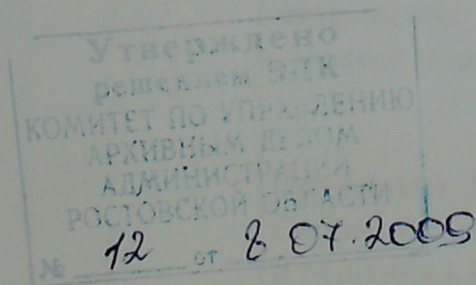 Утверждено
решением ЭПК
КОМИТЕТ ПО УПРАВЛЕНИЮ
АРХИВНЫМ ДЕЛОМ
АДМИНИСТРАЦИИ
РОСТОВСКОЙ ОБЛАСТИ
№ 12 от 8 07.2009